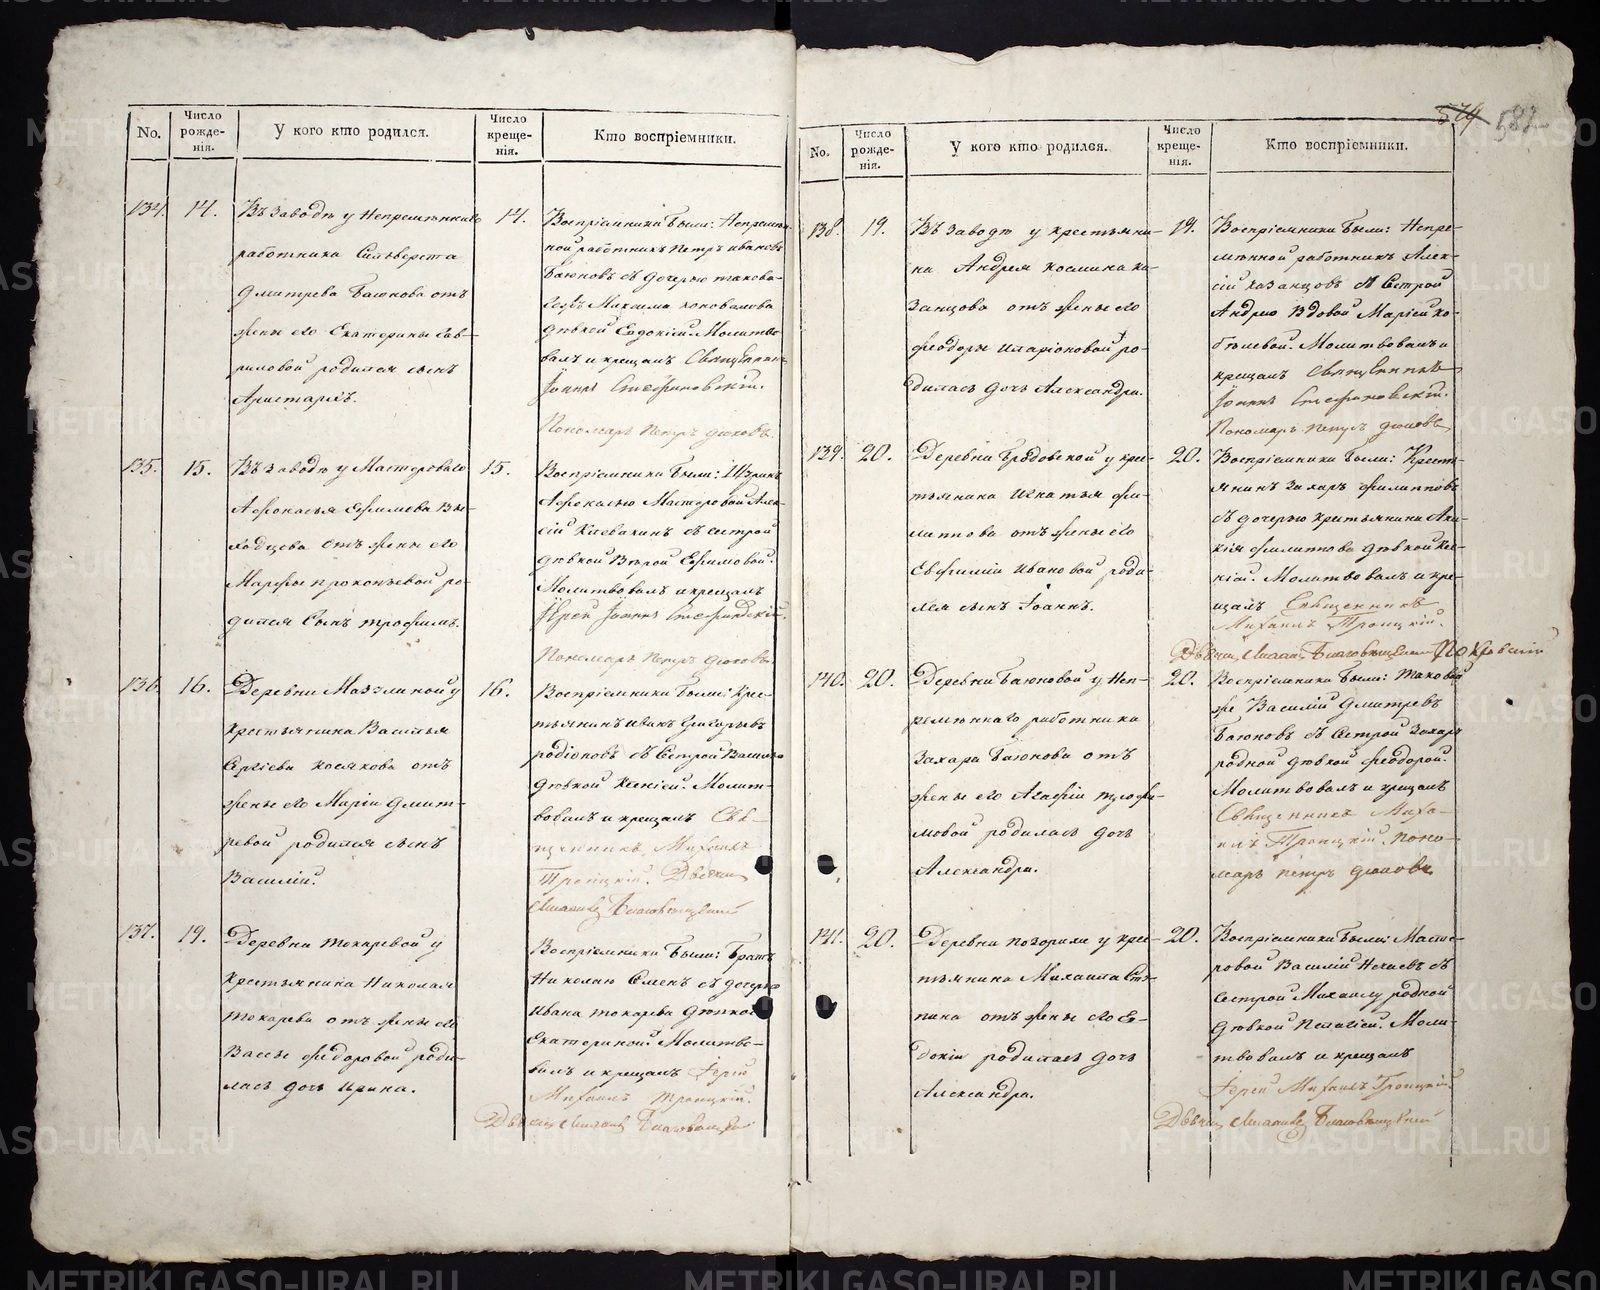 No.
Число рожде-нія.
У кого кто родился.
Число креще-нія.
Кто воспріемники.
134. 14.
Въ заводѣ у Непремѣннаго
работника Сильверста
Дмитрева Баюнова отъ
жены его Екатерины Гав-
риловой родился сынъ
Аристархъ.
14.
Воспріемники были: Непремѣн-
ной работникъ Петръ Ивановъ
Баюновъ съ дочерью
Михаила Коновалова
дѣвкой Евдокіей. Молитво-
валъ и крещалъ Священникъ
Іоаннъ Стефановскій.
Пономарь Петръ
135. 15.
Въ заводѣ у Мастероваго
Афонасья Ефимова Вы-
ходцова отъ жены его
Марфы Прокопьевой ро-
дился сынъ Трофимъ.
15.
Воспріемники были:
Афонасью Мастеровой Алек-
сій съ сестрой
дѣвкой Ефимовой.
Молитвовалъ и крещалъ
Іерей Іоаннъ Стефановскій.
Пономарь Петръ
136. 16.
Деревни у
крестьянина Василья
Сергіева Косякова отъ
жены его Маріи Дмит-
ревой родился сынъ
Василій.
16.
Воспріемники были: Крес-
тьянинъ Иванъ Григорьевъ
Родіоновъ съ сестрой
дѣвкой Ксеніей. Молит-
вовалъ и крещалъ Свя-
щенникъ Михаилъ
Троицкій. Дьячекъ
Благовещенский
137. 19.
Деревни Токаревой у
крестьянина Николая
Токарева отъ жены его
Вассы Федоровой роди-
лась дочь Ирина.
Воспріемники были: Братъ
Николаю Семенъ съ дочерью
Ивана Токарева дѣвкой
Екатериной. Молитво-
валъ и крещалъ Іерей
Михаилъ Троицкій.
Дьячекъ Благовещенский
579 582
No.
Число рожде-нія.
У кого кто родился.
Число креще-нія.
Кто воспріемники.
138. 19.
Въ заводѣ у крестьяни-
на Андрея Космина Ка-
занцова отъ жены его
Феодоры Иларіоновой ро-
дилась дочь Александра.
19.
Воспріемники были: Непре-
мѣнной работникъ Алек-
сій Казанцовъ съ сестрой
Андрею вдовой Маріей Ко-
былевой. Молитвовалъ и
крещалъ Священникъ
Іоаннъ Стефановскій.
Пономарь Петръ
139. 20.
Деревни Бродовской у крес-
тьянина Игнатья Фи-
липпова отъ жены его
Евфиміи Ивановой роди-
лся сынъ Іоаннъ.
20.
Воспріемники были: Кресть-
янинъ Захаръ Филипповъ
съ дочерью крестьянина
Филиппова дѣвкой Ксе-
ніей. Молитвовалъ и кре-
щалъ Священникъ
Михаилъ Троицкій.
Дьячекъ Благовещенский Покровский
140. 20.
Деревни Баюновой у Неп-
ремѣннаго работника
Захара Баюнова отъ
жены его Агафіи Трофи-
мовой родилась дочь
Александра.
20.
Воспріемники были: таковой
же Василій Дмитревъ
Баюновъ съ сестрой Захару
родной дѣвкой Феодорой.
Молитвовалъ и крещалъ
Священникъ Миха-
илъ Троицкій. Поно-
марь Петръ
141. 20.
Деревни у крес-
тьянина Михаила
отъ жены его Ев-
докіи родилась дочь
Александра.
20.
Воспріемники были: Масте-
ровой Василій съ
сестрой Михаилу родной
дѣвкой Пелагіей. Моли-
твовалъ и крещалъ
Іерей Михаилъ Троицкій.
Дьячекъ Благовещенский
METRIKI.GASO-URAL.RU